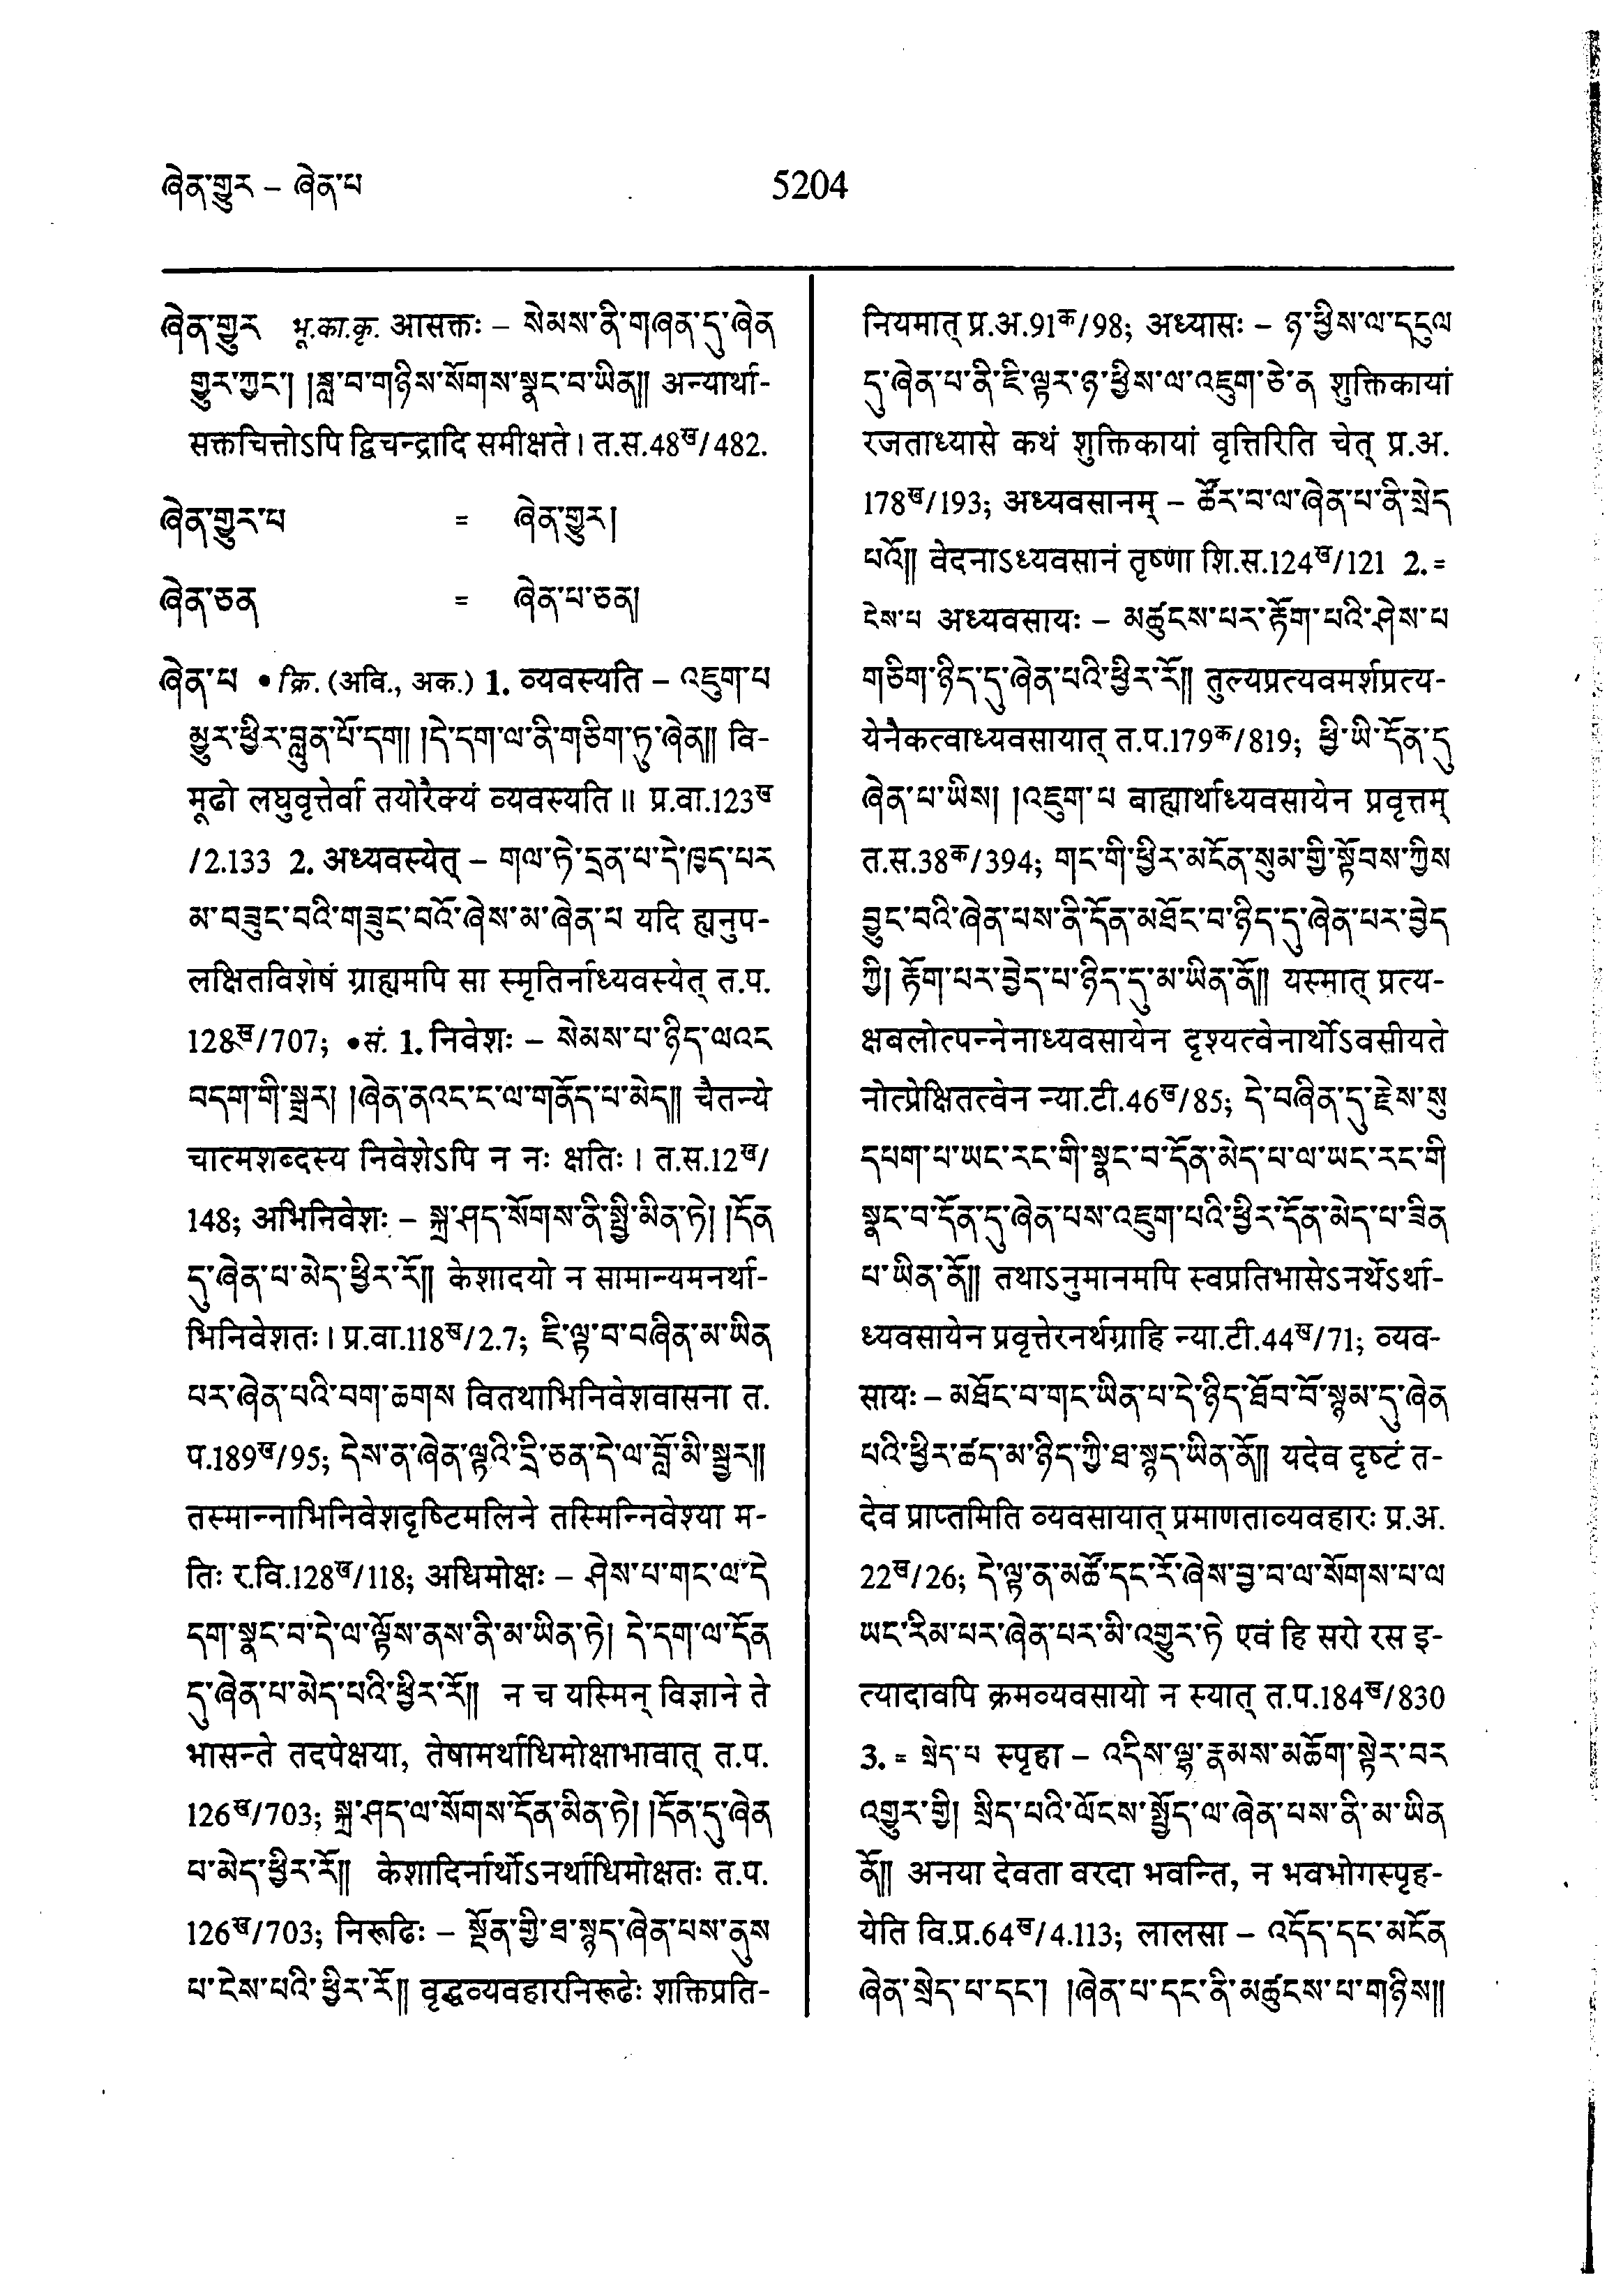 ཞེན་གྱུར – ཞེན་པ
5204
ཞེན་གྱུར भू.का.कृ. आसक्तः – སེམས་ནི་གཞན་དུ་ཞེན
གྱུར་ཀྱང་། །ཟླ་བ་གཉིས་སོགས་སྣང་བ་ཡིན།། अन्यार्था-
सक्तचित्तोऽपि द्विचन्द्रादि समीक्षते। त.स.48ख/482.
ཞེན་གྱུར་པ = ཞེན་གྱུར།
ཞེན་ཅན = ཞེན་པ་ཅན།
ཞེན་པ • क्रि. (अवि., अक.) 1. व्यवस्यति – འཇུག་པ
མྱུར་ཕྱིར་བླུན་པོ་དག། །དེ་དག་ལ་ནི་གཅིག་ཏུ་ཞེན།། वि-
मूढो लघुवृत्तेर्वा तयोरैक्यं व्यवस्यति॥ प्र.वा.123ख
/2.133 2. अध्यवस्येत् – གལ་ཏེ་དྲན་པ་དེ་ཁྱད་པར
མ་བཟུང་བའི་གཟུང་བའོ་ཞེས་མ་ཞེན་པ यदि ह्यनुप-
लक्षितविशेषं ग्राह्यमपि सा स्मृतिर्नाध्यवस्येत् त.प.
128ख/707; •सं. 1. निवेशः – སེམས་པ་ཉིད་ལའང
བདག་གི་སྒྲར། །ཞེན་ནའང་ང་ལ་གནོད་པ་མེད།། चैतन्ये
चात्मशब्दस्य निवेशेऽपि न नः क्षतिः। त.स.12ख/
148; अभिनिवेशः – སྐྲ་ཤད་སོགས་ནི་སྤྱི་མིན་ཏེ། །དོན
དུ་ཞེན་པ་མེད་ཕྱིར་རོ།། केशादयो न सामान्यमनर्था-
भिनिवेशतः। प्र.वा.118ख/2.7; ཇི་ལྟ་བ་བཞིན་མ་ཡིན
པར་ཞེན་པའི་བག་ཆགས वितथाभिनिवेशवासना त.
प.189ख/95; དེས་ན་ཞེན་ལྟའི་དྲི་ཅན་དེ་ལ་བློ་མི་སྦྱར།།
तस्मान्नाभिनिवेशदृष्टिमलिने तस्मिन्निवेश्या म-
तिः र.वि.128ख/118; अधिमोक्षः – ཤེས་པ་གང་ལ་དེ
དག་སྣང་བ་དེ་ལ་ལྟོས་ནས་ནི་མ་ཡིན་ཏེ། དེ་དག་ལ་དོན
དུ་ཞེན་པ་མེད་པའི་ཕྱིར་རོ།། न च यस्मिन् विज्ञाने ते
भासन्ते तदपेक्षया, तेषामर्थाधिमोक्षाभावात् त.प.
126ख/703; སྐྲ་ཤད་ལ་སོགས་དོན་མིན་ཏེ། །དོན་དུ་ཞེན
པ་མེད་ཕྱིར་རོ།། केशादिर्नार्थोऽनर्थाधिमोक्षतः त.प.
126ख/703; निरूढिः – སྔོན་གྱི་ཐ་སྙད་ཞེན་པས་ནུས
པ་ངེས་པའི་ཕྱིར་རོ།། वृद्धव्यवहारनिरूढेः शक्तिप्रति-
नियमात् प्र.अ.91क/98; अध्यासः – ཉ་ཕྱིས་ལ་དངུལ
དུ་ཞེན་པ་ནི་ཇི་ལྟར་ཉ་ཕྱིས་ལ་འཇུག་ཅེ་ན शुक्तिकायां
रजताध्यासे कथं शुक्तिकायां वृत्तिरिति चेत् प्र.अ.
178ख/193; अध्यवसानम् – ཚོར་བ་ལ་ཞེན་པ་ནི་སྲེད
པའོ།། वेदनाऽध्यवसानं तृष्णा शि.स.124ख/121 2.=
ངེས་པ अध्यवसायः – མཚུངས་པར་རྟོག་པའི་ཤེས་པ
གཅིག་ཉིད་དུ་ཞེན་པའི་ཕྱིར་རོ།། तुल्यप्रत्यवमर्शप्रत्य-
येनैकत्वाध्यवसायात् त.प.179क/819; ཕྱི་ཡི་དོན་དུ
ཞེན་པ་ཡིས། །འཇུག་པ बाह्यार्थाध्यवसायेन प्रवृत्तम्
त.स.38क/394; གང་གི་ཕྱིར་མངོན་སུམ་གྱི་སྟོབས་ཀྱིས
བྱུང་བའི་ཞེན་པས་ནི་དོན་མཐོང་བ་ཉིད་དུ་ཞེན་པར་བྱེད
ཀྱི། རྟོག་པར་བྱེད་པ་ཉིད་དུ་མ་ཡིན་ནོ།། यस्मात् प्रत्य-
क्षबलोत्पन्नेनाध्यवसायेन दृश्यत्वेनार्थोऽवसीयते
नोत्प्रेक्षितत्वेन न्या.टी.46ख/85; དེ་བཞིན་དུ་རྗེས་སུ
དཔག་པ་ཡང་རང་གི་སྣང་བ་དོན་མེད་པ་ལ་ཡང་རང་གི
སྣང་བ་དོན་དུ་ཞེན་པས་འཇུག་པའི་ཕྱིར་དོན་མེད་པ་ཟིན
པ་ཡིན་ནོ།། तथाऽनुमानमपि स्वप्रतिभासेऽनर्थेऽर्था-
ध्यवसायेन प्रवृत्तेरनर्थग्राहि न्या.टी.44ख/71; व्यव-
सायः – མཐོང་བ་གང་ཡིན་པ་དེ་ཉིད་ཐོབ་བོ་སྙམ་དུ་ཞེན
པའི་ཕྱིར་ཚད་མ་ཉིད་ཀྱི་ཐ་སྙད་ཡིན་ནོ།། यदेव दृष्टं त-
देव प्राप्तमिति व्यवसायात् प्रमाणताव्यवहारः प्र.अ.
22ख/26; དེ་ལྟ་ན་མཚོ་དང་རོ་ཞེས་བྱ་བ་ལ་སོགས་པ་ལ
ཡང་རིམ་པར་ཞེན་པར་མི་འགྱུར་ཏེ एवं हि सरो रस इ-
त्यादावपि क्रमव्यवसायो न स्यात् त.प.184ख/830
3. = སྲེད་པ स्पृहा – འདིས་ལྷ་རྣམས་མཆོག་སྟེར་བར
འགྱུར་གྱི། སྲིད་པའི་ལོངས་སྤྱོད་ལ་ཞེན་པས་ནི་མ་ཡིན
ནོ།། अनया देवता वरदा भवन्ति, न भवभोगस्पृह-
येति वि.प्र.64ख/4.113; लालसा – འདོད་དང་མངོན
ཞེན་སྲེད་པ་དང་། །ཞེན་པ་དང་ནི་མཚུངས་པ་གཉིས།།